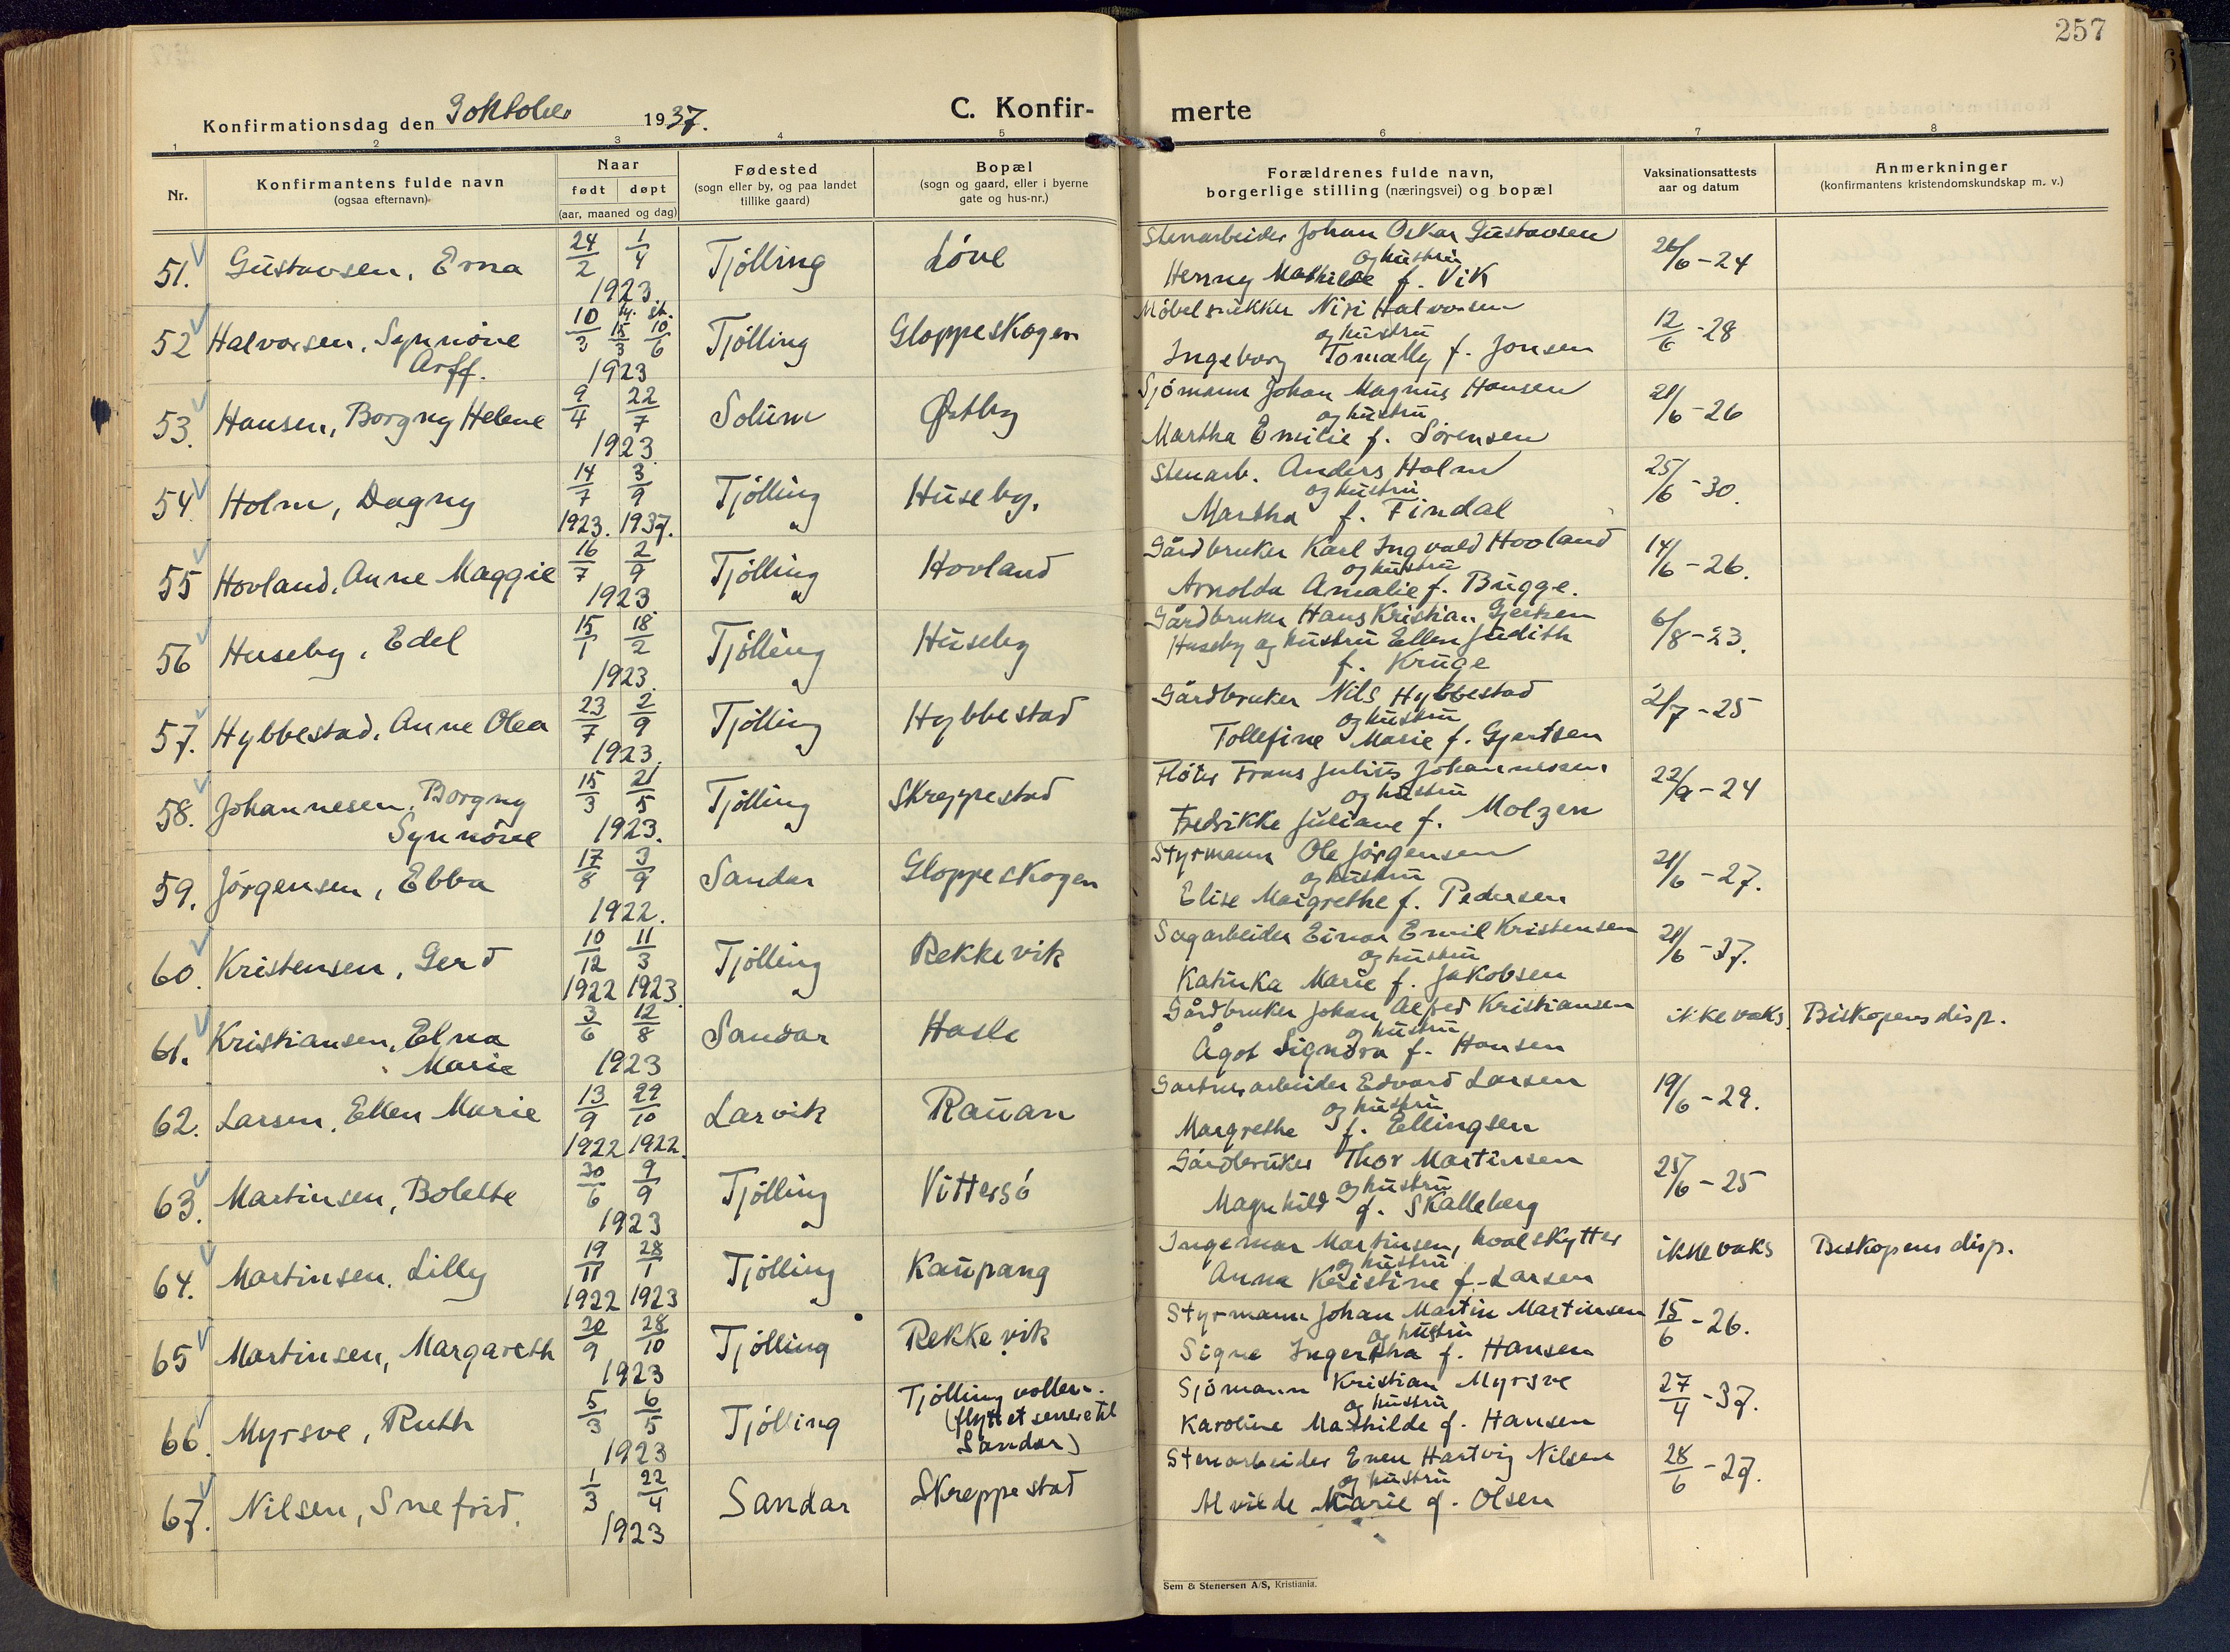 257
Konfirmationsdag den 3 oktober 1937.
C. Konfir-
merte
1 2 3 4 5 6 7 8
Nr.
Konfirmantens fulde navn
(ogsaa efternavn)
Naar
født døpt
(aar, maaned og dag)
Fødested
(sogn eller by, og paa landet
tillike gaard)
Bopæl
(sogn og gaard, eller i byerne
gate og hus-nr.)
Forældrenes fulde navn,
borgerlige stilling (næringsvei) og bopæl
Vaksinationsattests
aar og datum
Anmerkninger
(konfirmantens kristendomskundskap m. v.)
51. Gustavsen, Erna 24/2 1/4 1923 Tjølling Løve
Stenarbeider Johan Oskar Gustavsen
og hustru
Henny Mathilde f. Vik
26/6-24
52 Halvorsen, Synnöve
Arff.
10/3 hj. 15/3 st. 10/6 1923 Tjølling Gloppeskogen
Möbelsnekker Niri Halvorsen
og hustru
Ingeborg Tomally f. Jonsen
12/6-28
53. Hansen, Borgny Helene 9/4 22/7 1923 Solum Østby
Sjömann Johan Magnus Hansen
og hustru
Martha Emilie f. Sörensen
21/6-26
54 Holm, Dagny 14/7 1923. 3/9 1937. Tjølling Huseby.
Stenarb. Anders Holm
og hustru
Martha f. Findal
25/6-30.
55 Hovland, Anne Maggie 16/7 2/9 1923 Tjølling Hovland
Gårdbruker Karl Ingvald Hovland
og hustru
Arnolda Amalie f. Bugge.
14/6-26.
56 Huseby, Edel 15/1 18/2 1923 Tjølling Huseby
Gårdbruker Hans Kristian Gjertsen
Huseby og hustru Ellen Judith
f. Kruge
6/8-23.
57. Hybbestad, Anne Olea 23/7 2/9 1923. Tjølling Hybbestad
Gårdbruker Nils Hybbestad
og hustru
Tollefine Marie f. Gjertsen
2/7-25
58. Johannesen, Borgny
Synnöve
15/3 21/5 1923. Tjølling Skreppestad
Fløter Frans Julius Johannessen
og hustru
Fredrikke Juliane f. Molzen
22/9-24
59. Jörgensen, Ebba 17/8 3/9 1922. Sandar Gloppeskogen
Styrmann Ole Jörgensen
og hustru
Elise Margrethe f. Pedersen
21/6-27.
60. Kristensen, Gerd 10/12 1922 11/3 1923 Tjølling Rekkevik
Sagarbeider Einar Emil Kristensen
og hustru
Katinka Marie f. Jakobsen
21/6-37.
61. Kristiansen, Elna
Marie
3/6 12/8 1923 Sandar Hasle
Gårdbruker Johan Alfred Kristiansen
og hustru
Ågot Signora f. Hansen
ikke vaks. Biskopens disp.
62. Larsen, Ellen Marie 13/9 1922 29/10 1922. Larvik Rauan
Gartnerarbeider Edvard Larsen
og hustru
Margrethe f. Ellingsen
19/6-29.
63. Martinsen, Bolette 30/6 9/9 1923 Tjølling Vittersö
Gårdbruker Thor Martinsen
og hustru
Magnhild f. Skalleberg
25/6-25
64. Martinsen, Lilly 19/11 1922 28/1 1923 Tjølling Kaupang
Ingemar Martinsen, hvalskytter
og hustru
Anna Kristine f. Larsen
ikke vaks Biskopens disp.
65 Martinsen, Margareth 20/9 28/10 1923 Tjølling Rekkevik
Styrmann Johan Martin Martinsen
og hustru
Signe Ingertha f. Hansen
15/6-26.
66. Myrsve, Ruth 5/3 6/5 1923 Tjølling Tjølling vollen.
(flyttet senere til
Sandar)
Sjömann Kristian Myrsve
og hustru
Karoline Mathilde f. Hansen
27/4-37.
67. Nilsen, Snefrid. 1/3 22/4 1923 Sandar Skreppestad
Stenarbeider Even Hartvig Nilsen
og hustru
Alvilde Marie f. Olsen
28/6-27.
Sem & Stenersen A/S, Kristiania.